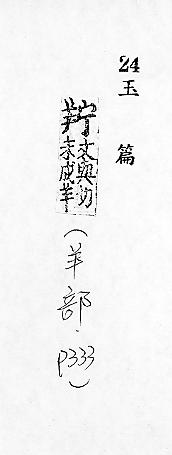 24
玉篇
羜
丈與切
未成羊
(羊部.p333)